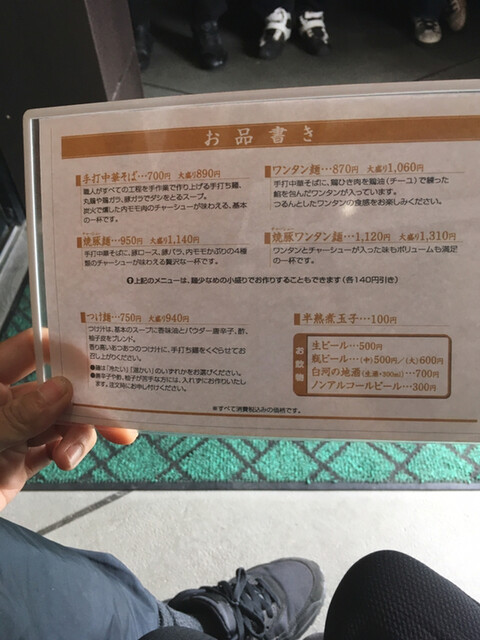 お品書き
手打中華そば…700円 大盛り890円
職人がすべての工程を手作業で作り上げる手打ち麺、
丸鶏や鶏ガラ、豚ガラでダシをとるスープ。
炭火で燻した内モモ肉のチャーシューが味わえる、基本
の一杯です。
ワンタン麺…870円 大盛り1,060円
手打中華そばに、鶏ひき肉を鶏油(チーユ)で練った
餡を包んだワンタンが入っています。
つるんとしたワンタンの食感をお楽しみください。
焼豚麺…950円 大盛り1,140円
手打中華そばに、豚ロース、豚バラ、内モモかぶりの4種
盤のチャーシューが味わえる贅沢な一杯です。
焼豚ワンタン麺…1,120円 大盛り1,310円
ワンタンとチャーシューが入った味もボリュームも満足
の一杯です。
上記のメニューは、麺少なめの小盛りでお作りすることもできます(各140円引き)
つけ麺…750円 大盛り940円
つけ汁は、基本のスープに香味油とパウダー唐辛子、酢、
柚子皮をブレンド。
香り高いあつあつのつけ汁に、手打ち麺をくぐらせてお
召し上がりください。
●麺は「冷たい」「温かい」のいずれかをお選びください。
●唐辛子や酢、柚子が苦手な方には、入れずにお作りいたし
ます。注文時にお申し付けください。
半熟煮玉子…100円
お飲物
生ビール…500円
瓶ビール…(中)500円/(大)600円
白河の地酒(生酒・300ml)…700円
ノンアルコールビール…300円
※すべて消費税込みの価格です。